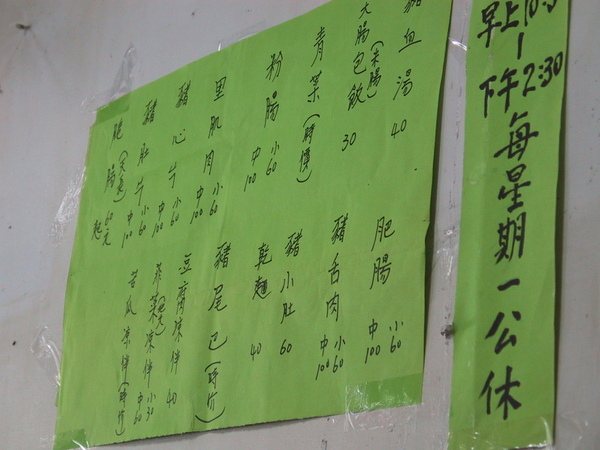 早上10:3
｜
下午2:30
每星期一公休
豬血湯 40
大腸包飯(米腸) 30
青菜(時價)
粉腸 小60 中100
里肌肉 小60 中100
豬心 小60
豬肚 小60 中100
腸 60元起
肥腸 小60 中100
豬舌肉 小60 中100
豬小肚 60
乾麵 40
豬尾巴(時价)
豆腐凍伴 40
凍伴 小30 中60
苦瓜凍伴(時价)